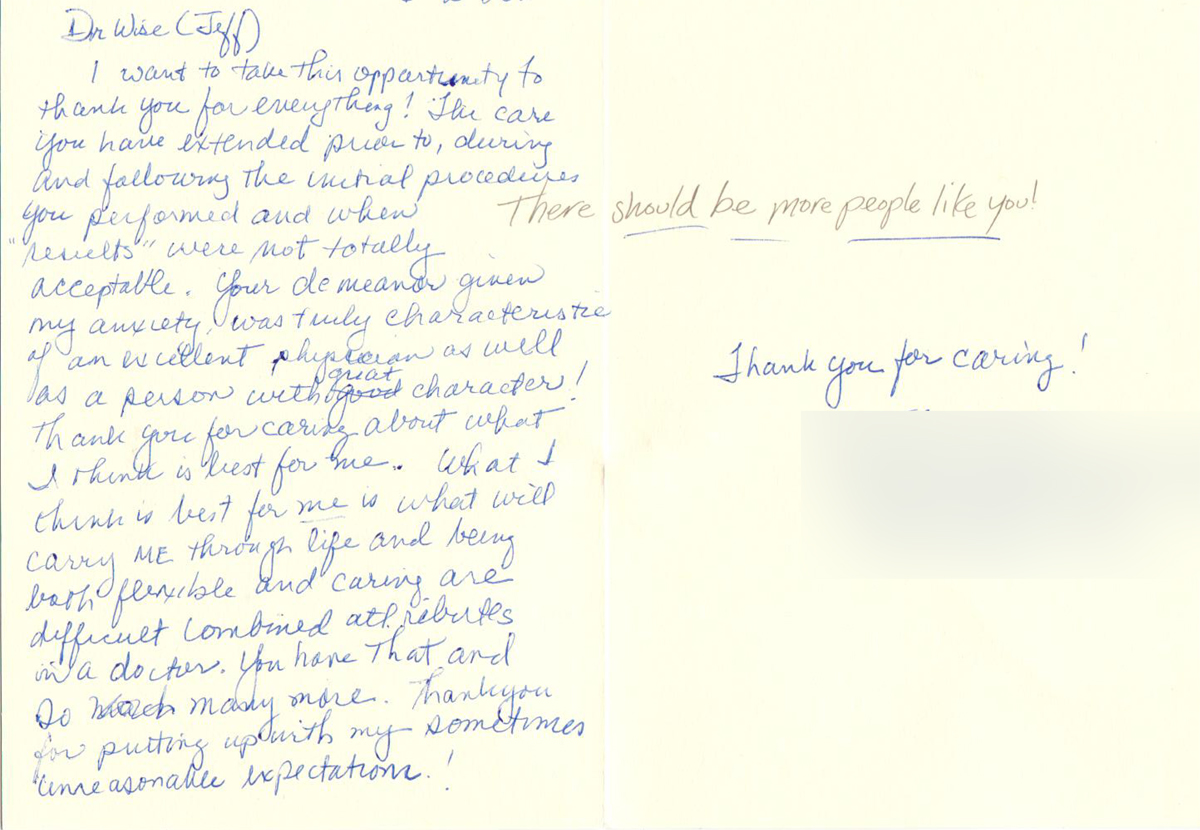 Dr Wise (Jeff)
I want to take this opportunity to
thank you for everything! The care
you have extended prior to, during
and following the initial procedures
you performed and when
"results" were not totally
acceptable. Your demeanor given
my anxiety, was truly characteristic
of an excellent physician as well
as a person with good great character!
Thank you for caring about what
I think is best for me. What I
think is best for me is what will
carry ME through life and being
both flexible and caring are
difficult combined attributes
in a doctor. You have that and
so much many more. Thank you
for putting up with my sometimes
unreasonable expectations!
There should be more people like you!
Thank you for caring!